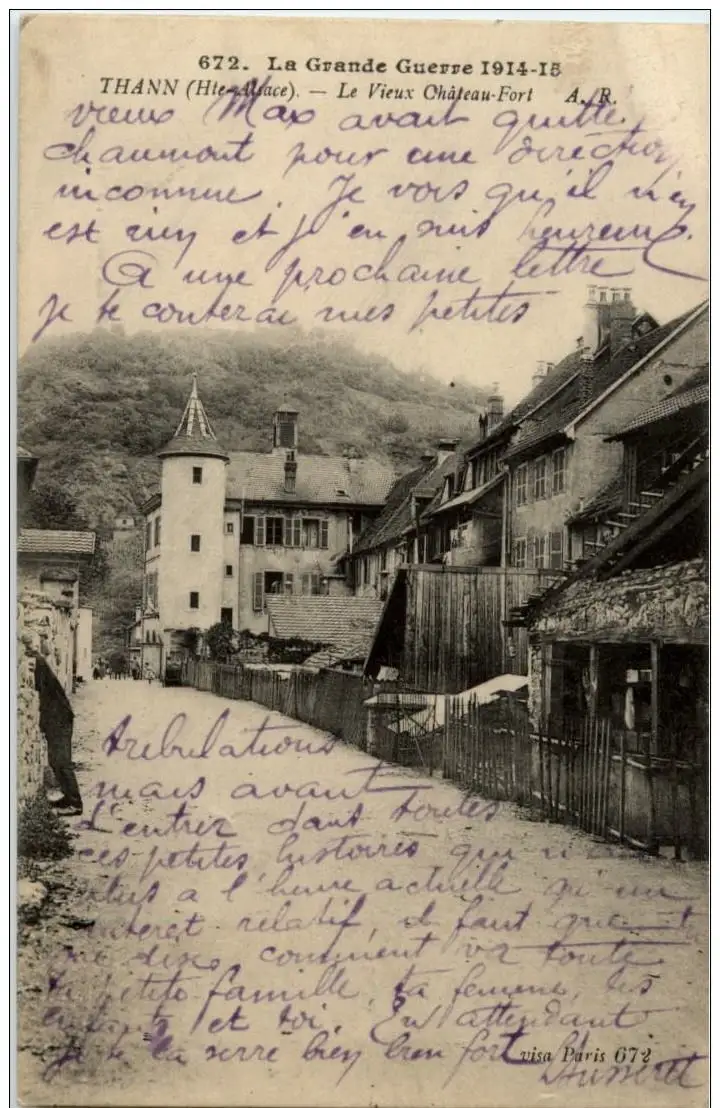 672. La Grande Guerre 1914-15
THANN (Hte-Alsace). — Le Vieux Château-Fort A. R.
vieux Max avait quitté
chaumont pour une direction
inconnue. Je vois qu'il n'en
est rien et j'en suis heureux.
A une prochaine lettre
je te conterai mes petites
tribulations
mais avant
d'entrer dans toutes
ces petites histoires qui n'
plus a l'heure actuelle qu'un
interet relatif, il faut que tu
me dises comment va toute
ta petite famille, ta femme, les
enfants et toi. En attendant
je te la serre bien bien fort
visa Paris 672